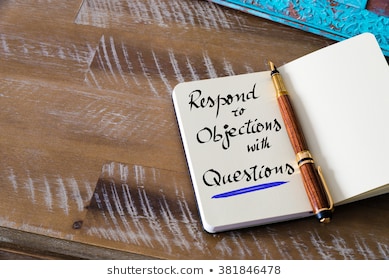 Respond
to
Objections
with
Questions
shutterstock.com • 381846478